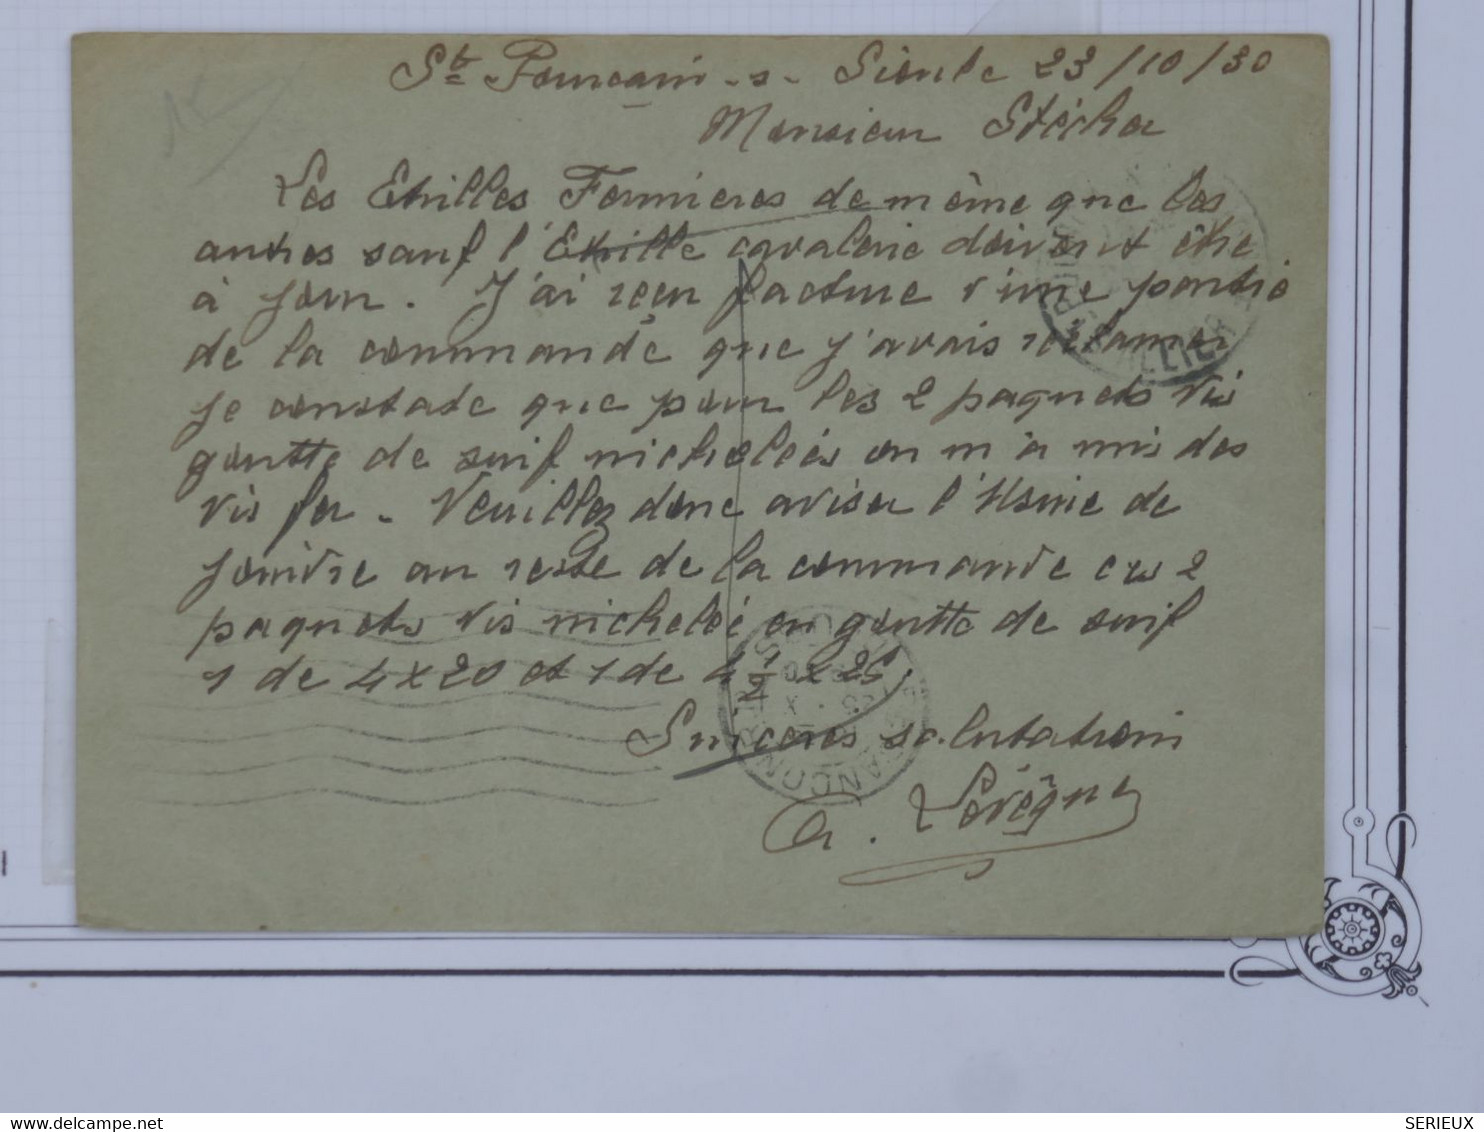 St Pourcain-s-Sioule 23/10/30
Monsieur Stécher
Les Etrilles Fermieres de même que les
autres sauf l'Etrille cavalerie doivent être
à jour. J'ai reçu facture d'une partie
de la commande que j'avais réclamé
je constate que pour les 2 paquets vis
goutte de suif nickelées on m'a mis des
vis fer. Veuillez donc aviser l'Usine de
joindre au reste de la commande ces 2
paquets vis nickelée en goutte de suif
1 de 4 x 20 et 1 de 4 1/2 x 25.
Sincères salutations
A. Levêque
ALLIER
BESANCON
SERIEUX
www.delcampe.net